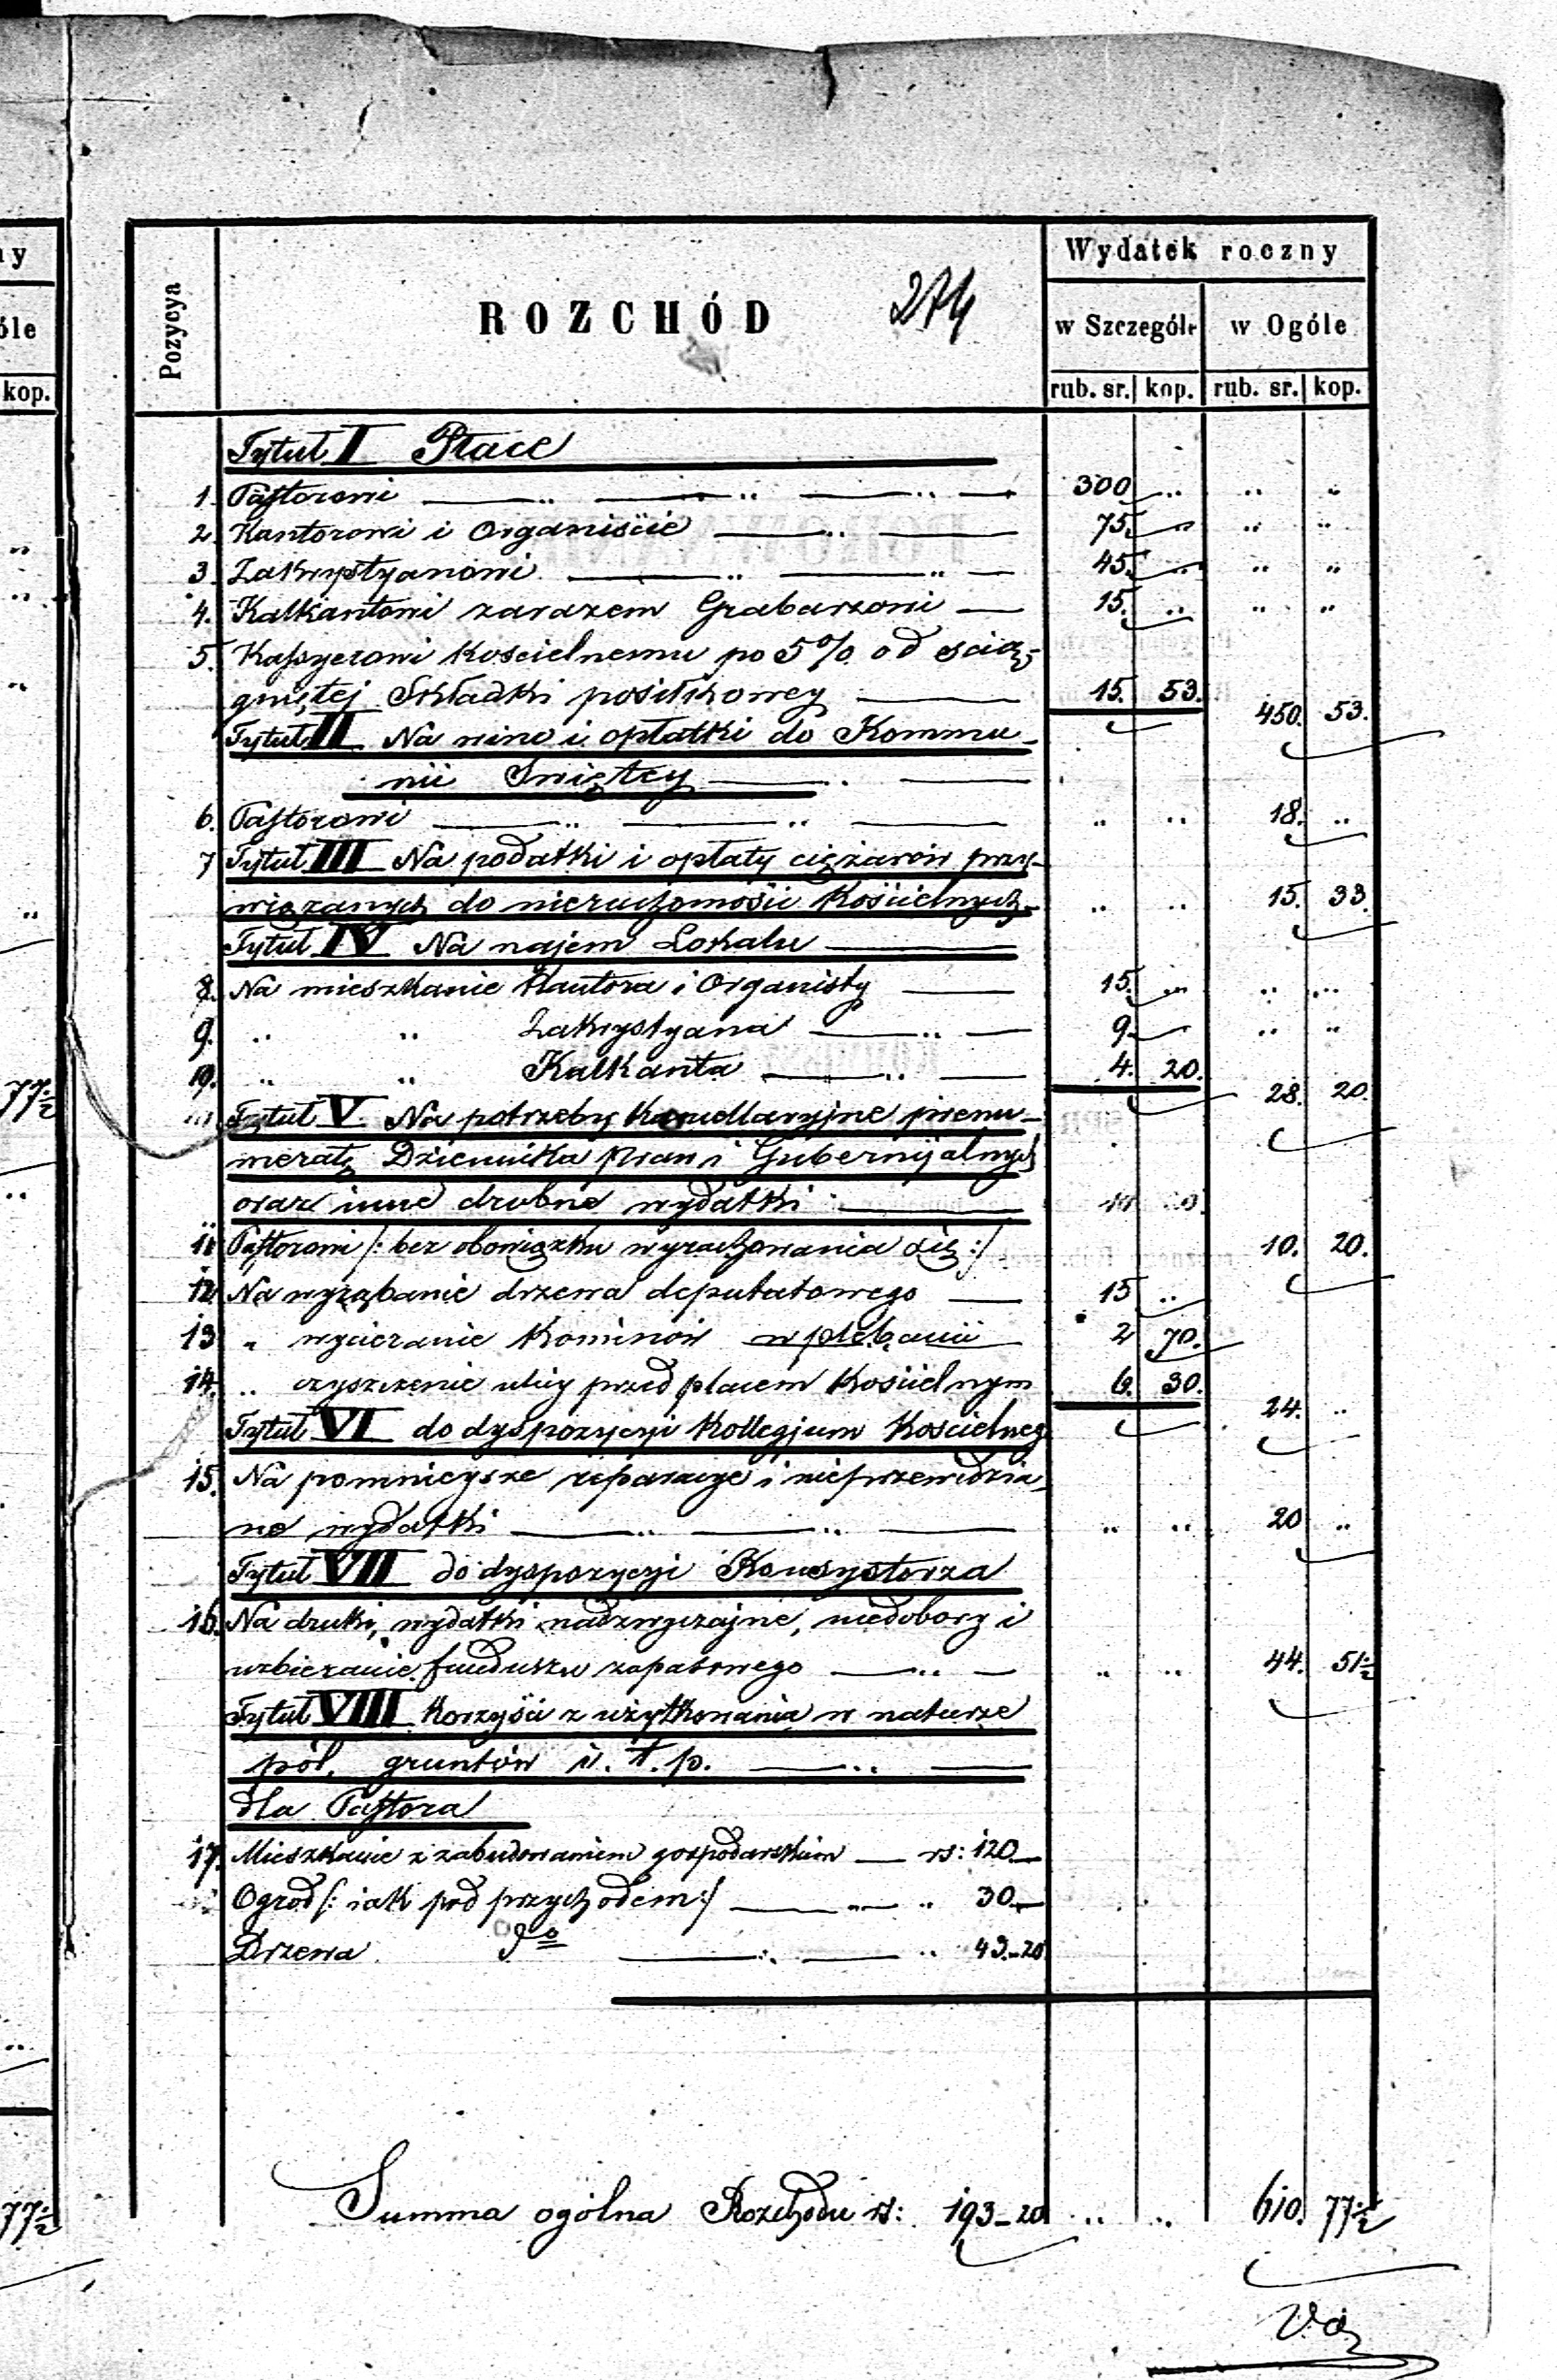 ny
óle
kop.
77½
77½
Pozycya
ROZCHÓD
274
Wydatek roczny
w Szczególe
w Ogóle
rub. sr. kop. rub. sr. kop.
Tytuł I Płace
1. Pastorowi 300 .. .. ..
2. Kantorowi i Organiście 75. .. .. ..
3. Zakrystyanowi 45. .. .. ..
4. Kalkantowi zarazem Grabarzowi 15. .. .. ..
5. Kassyerowi Kościelnemu po 5% od ścią-
gniętej Składki posiłkowey 15. 53. 450. 53.
Tytuł II Na wino i opłatki do Kommu-
nii Swiętey
6. Pastorowi .. .. 18. ..
7 Tytuł III Na podatki i opłaty ciężarów przy-
wiązanych do nieruchomości Kościelnych .. .. 15. 33.
Tytuł IV Na najem Lokalu
8. Na mieszkanie Kantora i Organisty 15. .. .. ..
9. .. .. Zakrystyana 9. .. ..
10. .. .. Kalkanta 4. 20. 28. 20.
Tytuł V. Na potrzeby Kancellaryjne prenu-
meratę Dziennika praw i Gubernijalnych
oraz inne drobne wydatki
11 Pastorowi /: bez obowiązku wyrachowania się :/ 10. 20.
12 Na wyrąbanie drzewa deputatowego 15 ..
13 " wycieranie Kominów w plebanii 2 70.
14. .. czyszczenie ulicy przed placem Kościelnym 6. 30. 24. ..
Tytuł VI do dyspozycyi Kollegjum Kościelneg
15. Na pomnieysze reparacye i nieprzewidzia-
ne wydatki .. .. 20 ..
Tytuł VII do dyspozycyi Konsystorza
16. Na druki, wydatki nadzwyczajne, niedobory i
uzbieranie funduszu zapasowego .. .. 44. 51½
Tytuł VIII Korzyści z użytkowania w naturze
pól, gruntów i. t. p.
dla Pastora
17. Mieszkanie z zabudowaniem gospodarskim rs: 120.—
Ogród /: iak pod przychodem :/ .. 30.—
Drzewa do .. 43.-20
Summa ogólna Rozchodu rs: 193-20 .. .. 610. 77½